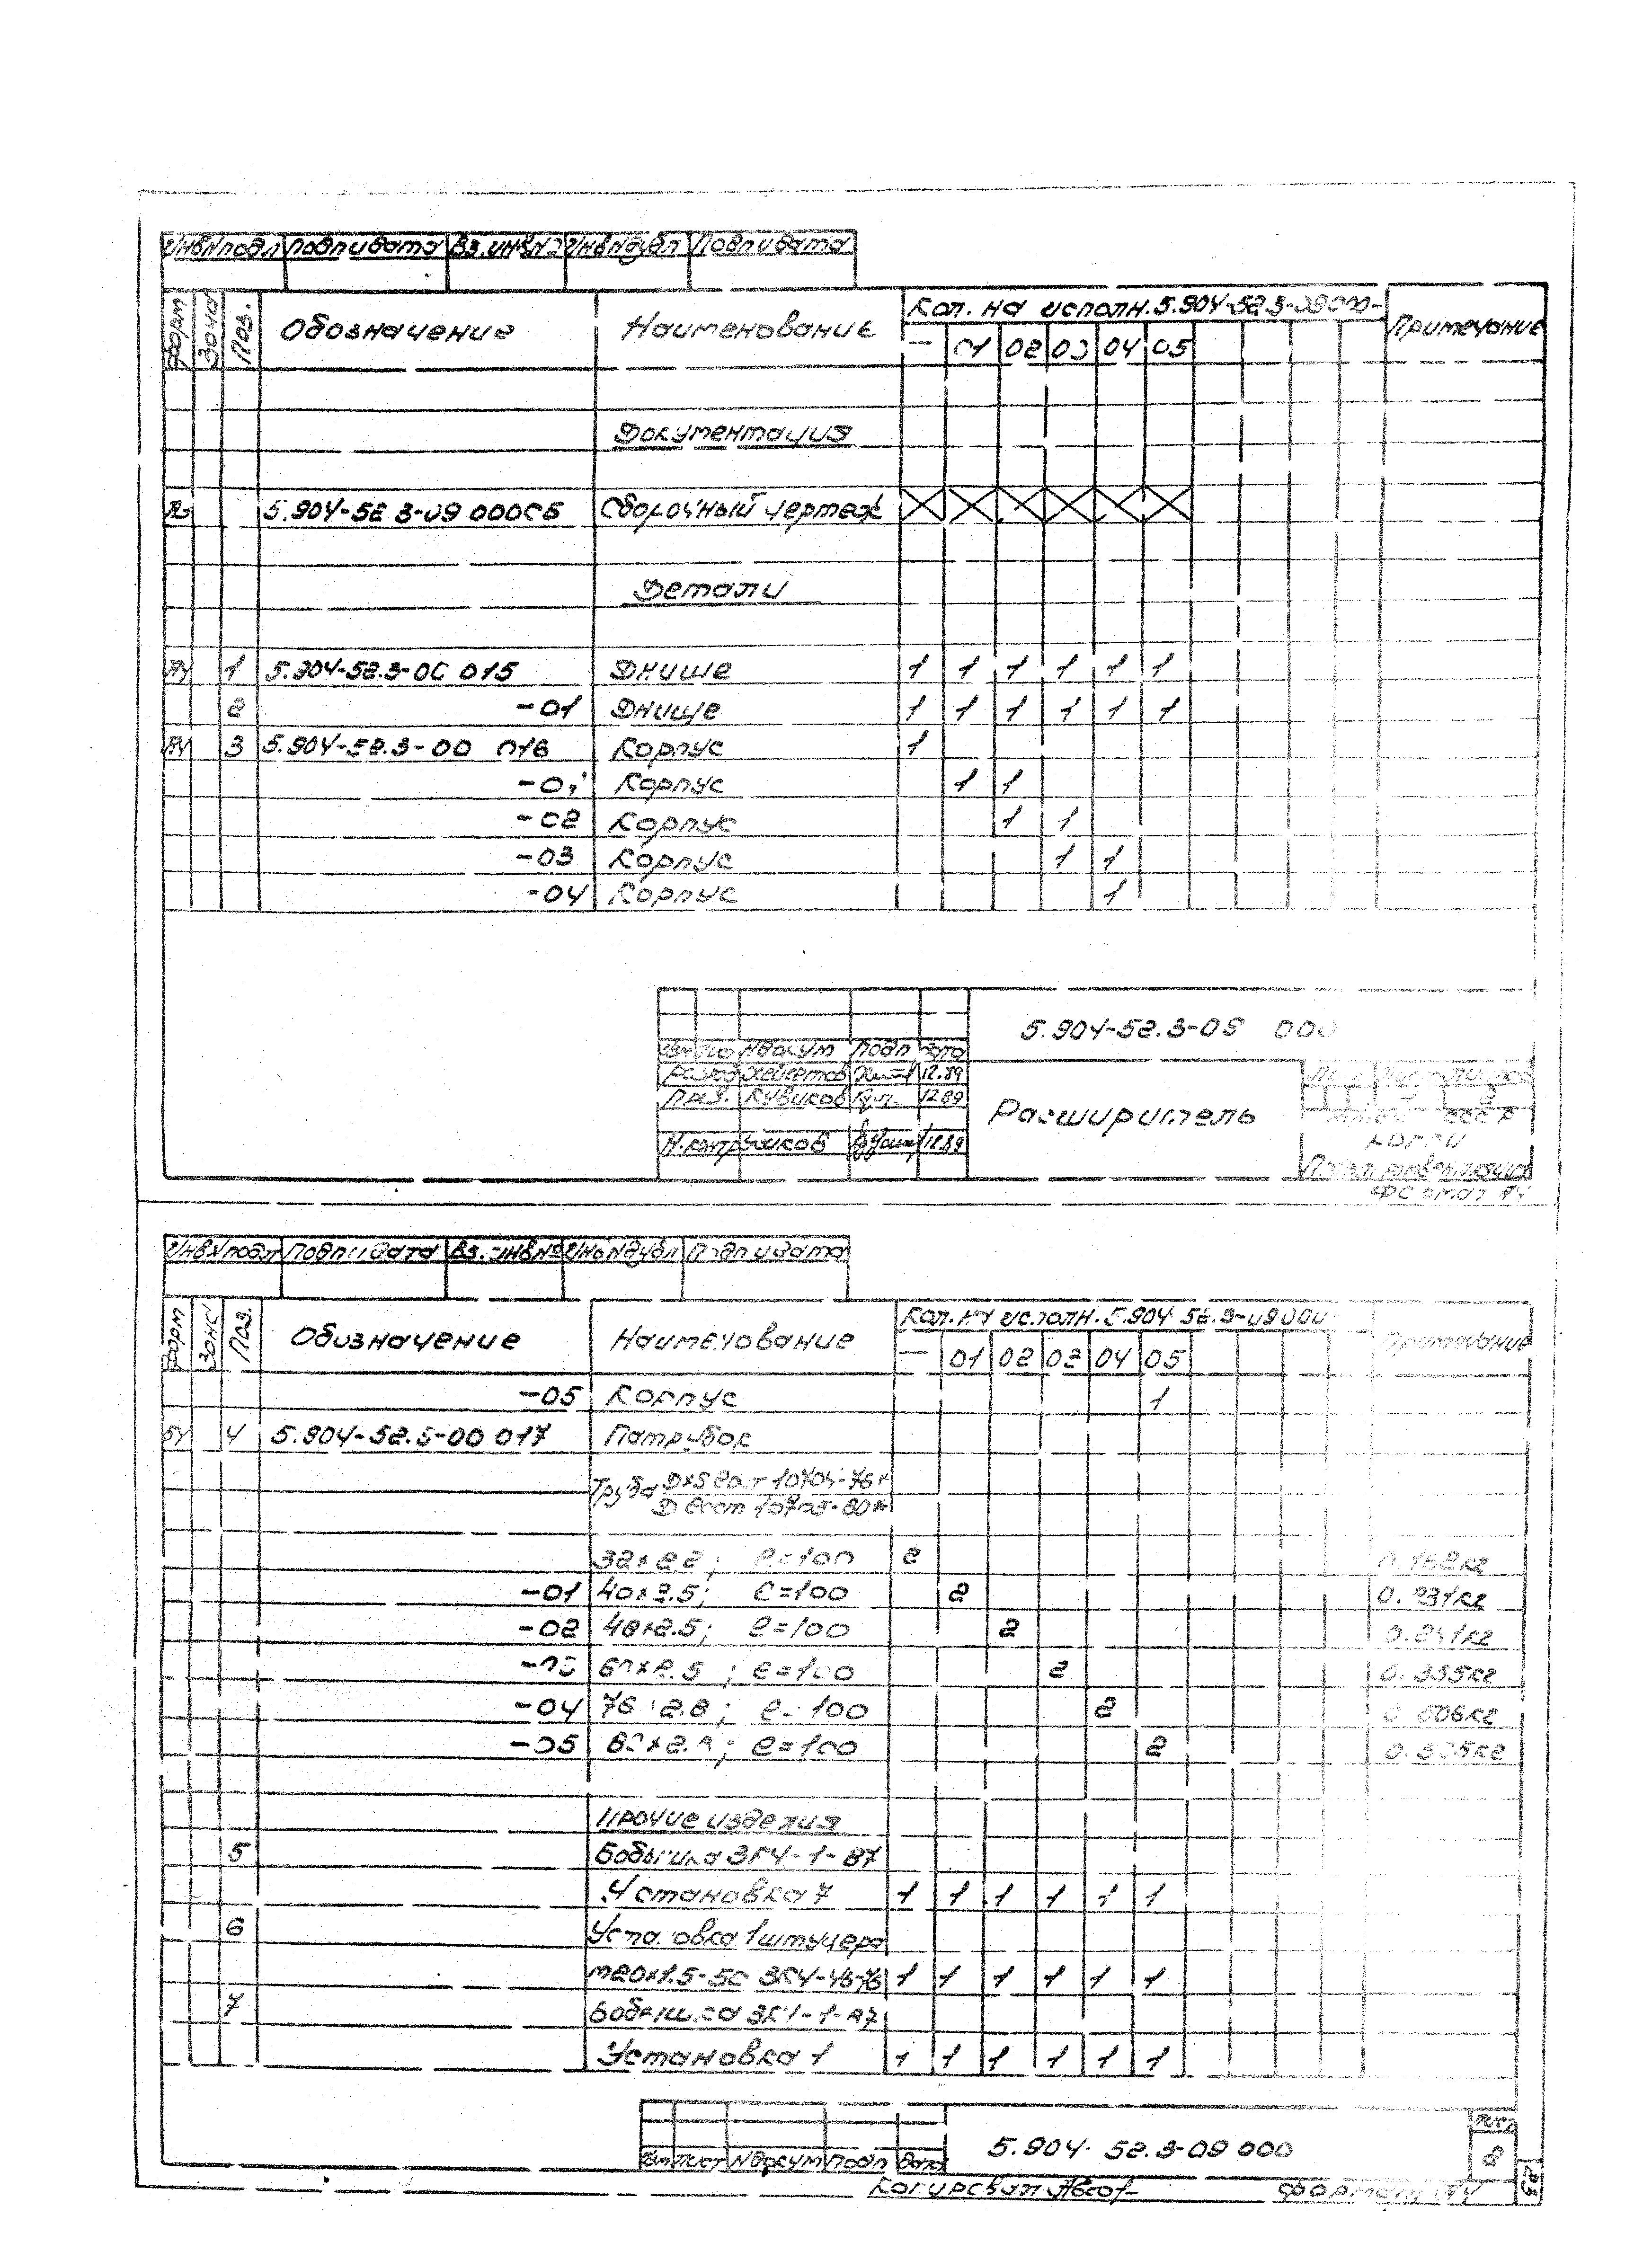 Инв№подл Подп и дата Вз.инв№ Инв№дубл Подп и дата
Форм Зона Поз. Обозначение Наименование Кол. на исполн. 5.904-52.3-09000- Примечание
— 01 02 03 04 05
Документация
5.904-52.3-09 000СБ Сборочный чертеж
Детали
А4 1 5.904-52.3-00 015 Днище 1 1 1 1 1 1
2 -01 Днище 1 1 1 1 1 1
А4 3 5.904-52.3-00 016 Корпус 1
-01 Корпус 1 1
-02 Корпус 1 1
-03 Корпус 1 1
-04 Корпус 1
5.904-52.3-09 000
Изм Лист №докум Подп Дата
Разраб 12.89
Пров. 12.89
Расширитель
Н.контр 12.89
Формат А4
Инв№подл Подп и дата Вз.инв№ Инв№дубл Подп и дата
Форм Зона Поз. Обозначение Наименование Кол. на исполн. 5.904-52.3-09000 Примечание
— 01 02 03 04 05
-05 Корпус 1
БЧ 4 5.904-52.3-00 017 Патрубок
Труба DxS Гост 10704-76
Гост 10705-80
32×2.2; ℓ=100 2
-01 40×2.5; ℓ=100 2 0.231кг
-02 48×2.5; ℓ=100 2
-03 60×2.5; ℓ=100 2 0.355кг
-04 76×2.8; ℓ=100 2 0.506кг
-05 ℓ=100 2
Прочие изделия
5 Бобышка ЗК4-1-87
Установка 7 1 1 1 1 1 1
6 Установка 1 штуцера
М20×1.5-50 ЗК4-46-76 1 1 1 1 1 1
7 Бобышка ЗК4-1-87
Установка 1 1 1 1 1 1 1
5.904-52.3-09 000 Лист
Изм Лист №докум Подп Дата
Копировал Формат А4
23